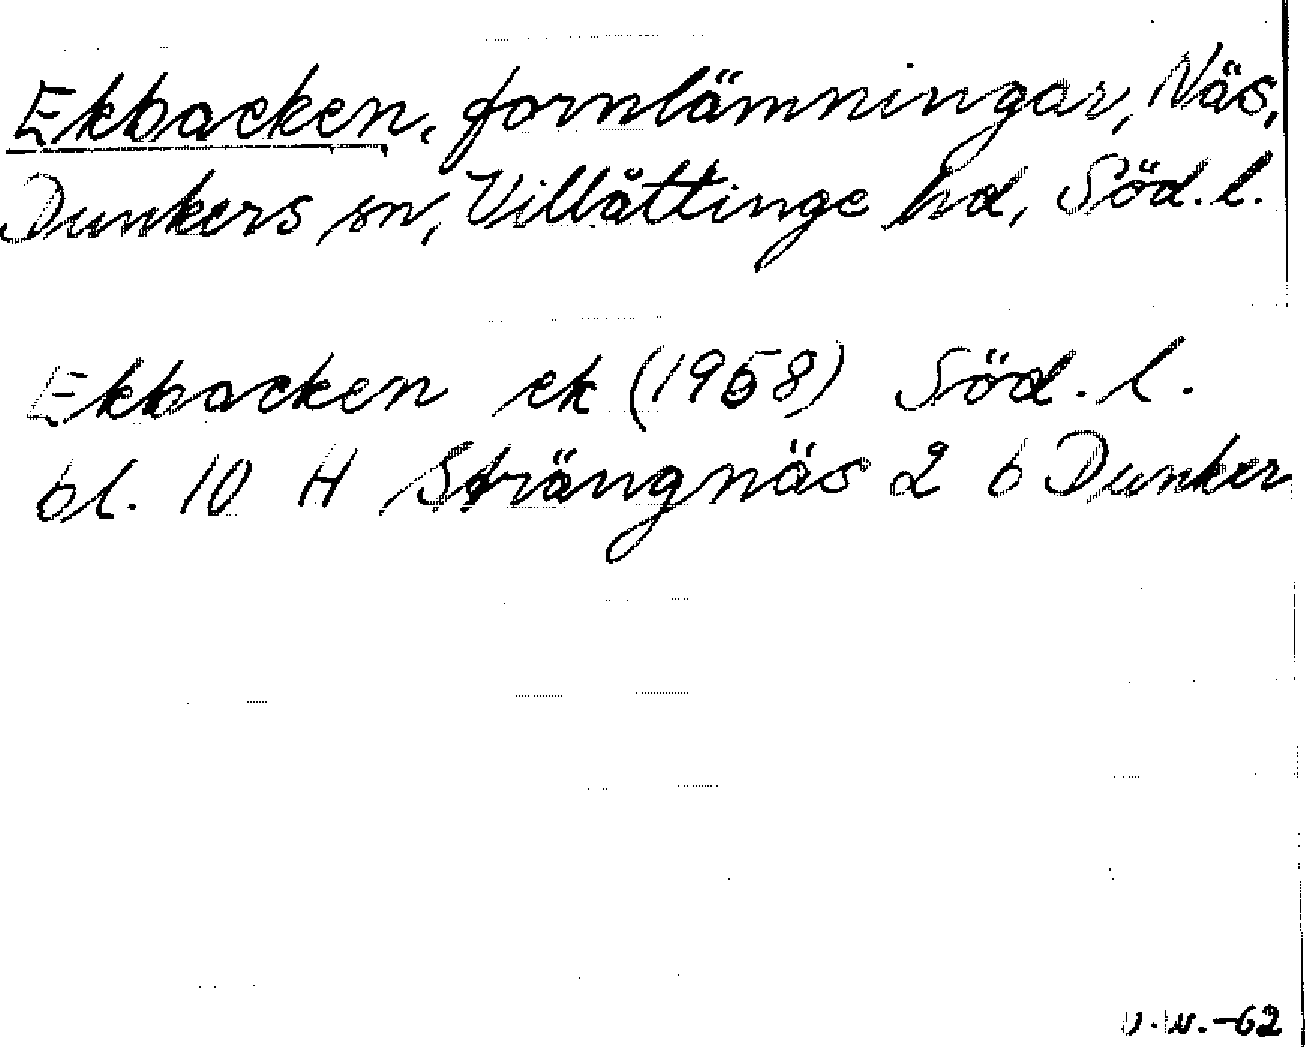 Ekbacken, fornlämningar, Näs,
Dunkers sn, Villåttinge hd, Söd. l.
Ekbacken ek (1958) Söd. l.
bl. 10 H Strängnäs 2 b Dunker
-62